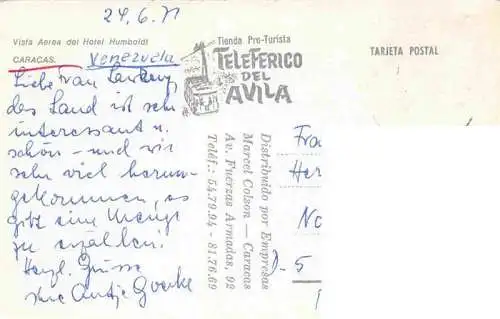 24.6.71
Vista Aerea del Hotel Humboldt
CARACAS. Venezuela
Tienda Pro-Turista
TELEFERICO
DEL
AVILA
TARJETA POSTAL
Liebe Frau
das Land ist sehr
interessant u.
schön - und wir
sehr viel herum-
gekommen, es
gibt eine Menge
zu erzählen!
Herzl. Grüsse
Ihre Antje
Distribuido por Empresas
Marcel Colson — Caracas
Av. Fuerzas Armadas, 92
Teléf.: 54.79.94 - 81.76.69
Fra
Her
No
D-5